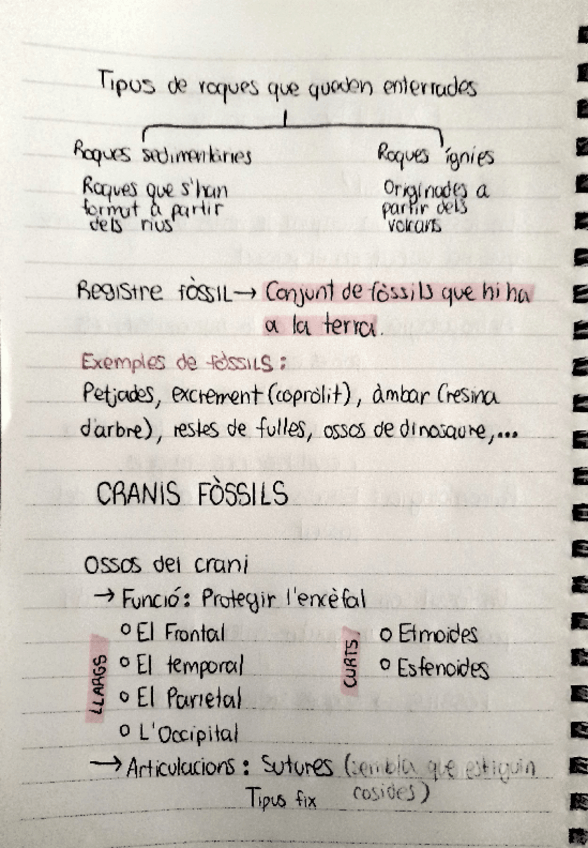 Tipus de roques que queden enterrades
Roques sedimentàries
Roques que s'han
format a partir
dels rius
Roques ígnies
Originades a
partir dels
volcans
Registre fòssil → Conjunt de fòssils que hi ha
a la terra.
Exemples de fòssils:
Petjades, excrement (copròlit), àmbar (resina
d'arbre), restes de fulles, ossos de dinosaure,...
CRANIS FÒSSILS
Ossos del crani
→ Funció: Protegir l'encèfal
LLARGS
o El Frontal
o El temporal
o El Parietal
o L'Occipital
CURTS
o Etmoides
o Esfenoides
→ Articulacions: Sutures (sembla que estiguin
cosides)
Tipus fix